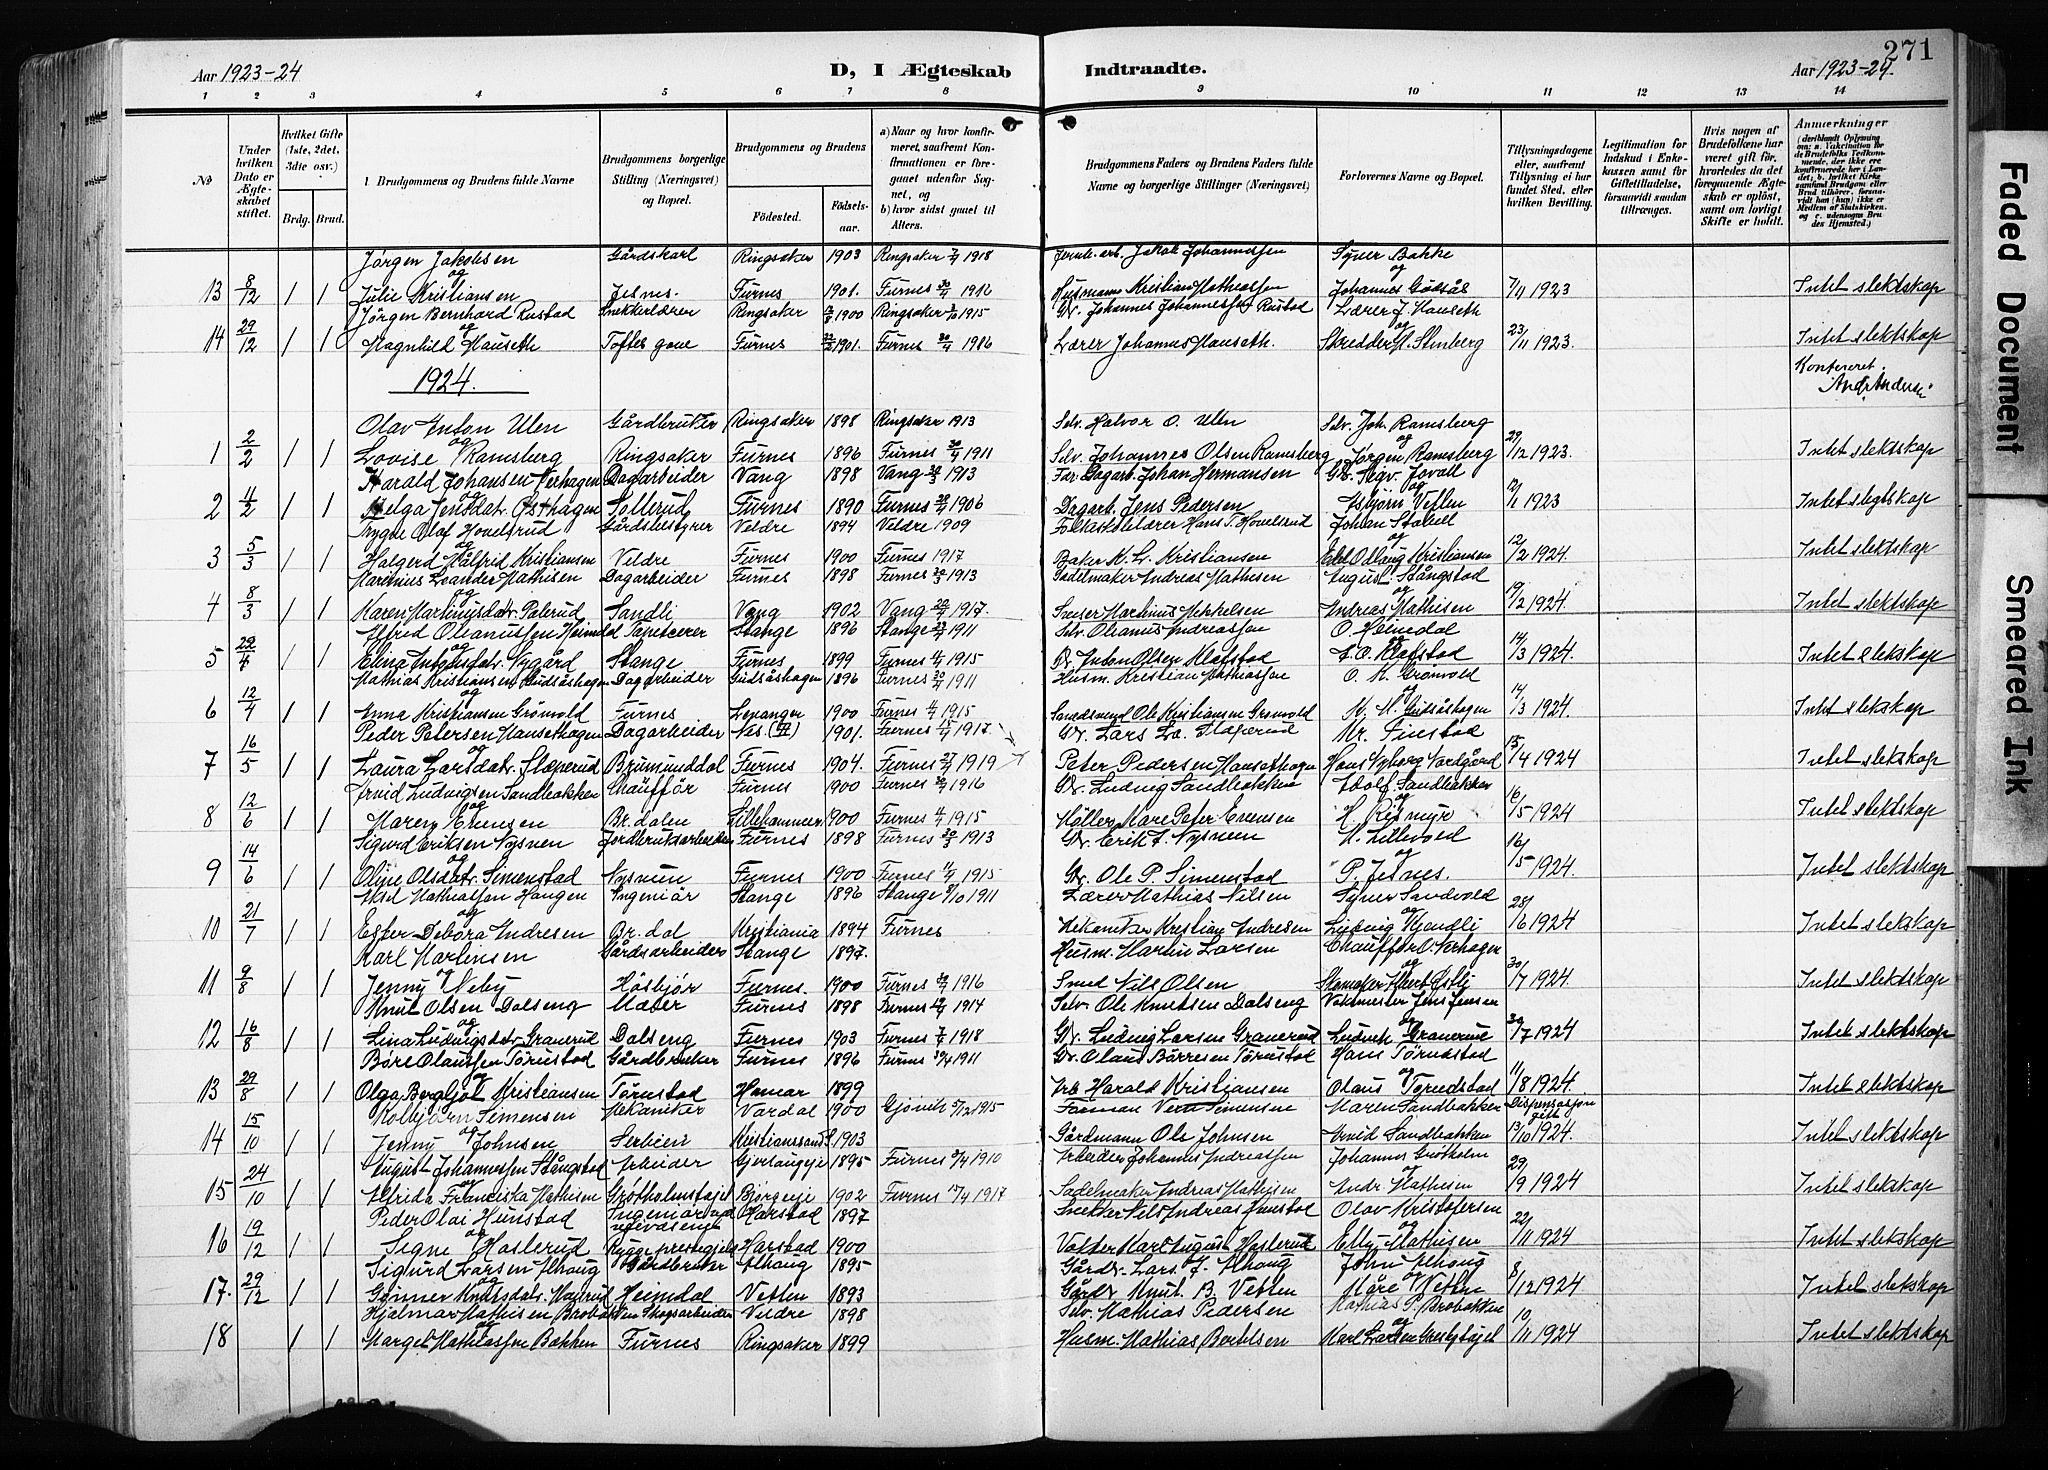 271
Aar 1923-24 D, I Ægteskab Indtraadte. Aar 1923-24.
1 2 3 4 5 6 7 8 9 10 11 12 13 14
№
Under hvilken Dato er Ægteskabet stiftet.
Hvilket Gifte (1ste, 2det, 3die osv.)
Brdg. Brud.
1. Brudgommens og Brudens fulde Navne
Brudgommens borgerlige Stilling (Næringsvei) og Bopæl.
Brudgommens og Brudens
Fødested. Fødselsaar.
a) Naar og hvor konfirmeret, saafremt Konfirmationen er foregaaet udenfor Sognet, og
b) hvor sidst gaaet til Alters.
Brudgommens Faders og Brudens Faders fulde Navne og borgerlige Stillinger (Næringsvei)
Forlovernes Navne og Bopæl.
Tillysningsdagene eller, saafremt Tillysning ei har fundet Sted, efter hvilken Bevilling.
Legitimation for Indskud i Enkekassen samt for Giftetilladelse, forsaavidt saadan tiltrænges.
Hvis nogen af Brudefolkene har været gift før, hvorledes da det foregaaende Ægteskab er opløst, samt om lovligt Skifte er holdt.
Anmerkninger
Jørgen Jakobsen Gårdskarl Ringsaker 1903 Ringsaker 7/4 1918 Jernb.arb. Jakob Johannessen Syver Bakke
13 8/12 1 1 og Julie Kristiansen Jesnes. Furnes 1901. Furnes 30/4 1916 Husmann Kristian Mathiassen og Johannes Godsås 7/11 1923 Intet slektskap
Jørgen Bernhard Rustad Snekkerlærer Ringsaker 1900 Ringsaker 3/10 1915 Gbr. Johannes Johannessen Rustad Lærer J. Hauseth
14 29/12 1 1 og Magnhild Hauseth Toftes gave Furnes 1901. Furnes 30/4 1916 Lærer Johannes Hauseth. og Skredder M. Stenberg 23/11 1923. Intet slektskap
1924. Konfereret
Olav Anton Ulen Gårdbruker Ringsaker 1898 Ringsaker 1913 Selv. Halvor O. Ulen Selv. Joh. Ramsberg
1 2/2 1 1 og Lovise Ramsberg Ringsaker Furnes 1896 Furnes 30/4 1911 Selv. Johannes Olsen Ramsberg og Jørgen Ramsberg 29/12 1923. Intet slektskap
Harald Johansen Verhagen Dagarbeider Vang 1898 Vang 1913 Far: Dagarb. Johan Hermansen Gb. Sigv. Jovall
2 4/2 1 1 og Helga Jensdatr. Østhagen Sollerud Furnes 1890 Furnes 1906 Dagarb. Jens Pedersen og Asbjørn Vetten 1923 Intet slegtskap
Trygve Olaf Hovelsrud Gårdsbestyrer Veldre 1894 Veldre 1909 Folkeskolelærer Hans T. Hovelsrud Johan Stokset
3 5/3 1 1 og Halgerd Målfrid Kristiansen Veldre Furnes 1900 Furnes 1917 Baker K. L. Kristiansen og Odlaug Kristiansen 12/2 1924. Intet slektskap
Marenius Leander Mathisen Dagarbeider Furnes 1898 Furnes 1913 Sadelmaker Andreas Mathisen August Stångstad
4 8/3 1 1 og Karen Martinusdatr. Palerud Sandli Vang 1902 Vang 1917. Sveiser Martinus Mikkelsen og Andreas Mathisen 19/2 1924. Intet slektskap
Alfred Olianussen Heimdal Tapetserer Stange 1896 Stange 1911 Selv. Olianus Andreassen O. Heimdal
5 22/4 1 1 og Elina Antonsdatr. Nygård Stange Furnes 1899 Furnes 11/4 1915 Br. Anton Olsen Klafstad og A. O. Klafstad 14/3 1924. Intet slektskap
Mathias Kristiansen Gudsåshagen Dagarbeider Gudsåshagen 1896 Furnes 30/4 1911 Husm. Kristian Mathiassen O. K. Grønvold
6 12/4 1 1 og Anna Kristiansen Grønvold Furnes Levanger 1900 Furnes 11/4 1915 Ole Kristiansen Grønvold og K. M. Gudsåshagen 14/3 1924. Intet slektskap
Peder Petersen Hansethagen Dagarbeider Nes (H) 1901. Furnes 15/4 1917. Gbr. Lars La. Slaperud Kr. Finstad
7 16/5 1 1 og Laura Larsdatr. Slaperud Brumunddal Furnes 1904. Furnes 27/4 1919 Peter Pedersen Hansethagen og Hans Nyborg Nordgård 15/4 1924 Intet slektskap
Arvid Ludvigsen Sandbakken Chauffør Furnes 1900 Furnes 30/4 1916 Gbr. Ludvig Sandbakken Adolf Sandbakken
8 12/6 1 1 og Maren Evensen Br.dalen Lillehammer 1900 Furnes 11/4 1915 Møller Mare Peter Evensen og H. Rismyr 16/5 1924 Intet slektskap
Sigurd Eriksen Nysveen Jordbruksarbeider Furnes 1898 Furnes 1913 Gbr. Erik J. Nysveen M. Lillevold
9 14/6 1 1 og Oline Olsdatr. Simenstad Nysveen Furnes 1900 Furnes 11/4 1915 Gbr. Ole P. Simenstad og P. Jesnes. 16/5 1924. Intet slektskap
Aksel Mathiassen Haugen Ingeniør Stange 1896 Stange 8/10 1911 Lærer Mathias Nilsen Syver Sandvold
10 21/7 1 1 og Ester Debora Andresen Br.dal Kristiania 1894 Furnes Mekaniker Kristian Andresen og Ludvig Kjendli 28/6 1924 Intet slektskap
Karl Martinsen Gårdsarbeider Stange 1897. Husm. Martin Larsen Chauffør O. Verhagen
11 9/8 1 1 og Jenny Neby Høsbjør Furnes. 1900 Furnes 30/4 1916 Smed Nils Olsen og 30/7 1924 Intet slektskap
Knut Olsen Dalseng Maler Furnes 1898 Furnes 1914 Selv. Ole Knutsen Dalseng Vaktmester Jens Jensen
12 16/8 1 1 og Lina Ludvigsdatr. Granerud Dalseng Furnes 1903 Furnes 7/4 1918 Gbr. Ludvig Larsen Granerud og Ludvik Granerud 30/7 1924 Intet slektskap
Børe Olaussen Tørudstad Gårdbruker Furnes 1896 Furnes 30/4 1911 Gbr. Olaus Børresen Tørudstad Hans Tørudstad
13 29/8 1 1 og Olga Bergljot Kristiansen Tørudstad Hamar 1899 Arb Harald Kristiansen Olaus og Tørudstad 11/8 1924. Intet slektskap
Kolbjørn Simensen Mekaniker Vardal 1900 Gjøvik 5/12 1915 Formann Simensen Maren Sandbakken Dispensasjon gitt
14 15/10 1 1 og Jenny Johnsen Serbien Kristianssand S. 1903 Gårdmann Ole Johnsen Arvid Sandbakken 13/10 1924. Intet slektskap
August Johannessen Stångstad Arbeider 1895 Furnes 3/4 1910 Arbeider Johannes Andreassen Johannes Grøtholm
15 24/10 1 1 og Alfrida Franciska Mathisen Grøtholmstajet Bjørgeeje 1902 Furnes 15/4 1917 Sadelmaker Andreas Mathisen og Andr. Mathisen 29/9 1924 Intet slektskap
Peder Olai Hunstad Ingeniør ved Harstad 1897 Snekker Nils Andreas Hunstad Olav Kristofersen
16 19/12 1 1 og Signe Haslerud Rygge prestegjeld Harstad 1900 Valter Karl August Haslerud og Elly Mathisen 22/11 1924 Intet slektskap
Sigurd Larsen Alhaug Gårdbruker Alhaug 1895 Gårdbr. Lars. J. Alhaug John Alhaug
17. 29/12 1 1 og Gunner Knutsdatr. Heimdal Vetten 1893 Gårdbr. Knut. B. Vetten Kåre og Vetten 8/12 1924 Intet slektskap
Hjelmar Mathisen Brobakken Skogsarbeider Veldre 1898 Selv. Mathias Pedersen Mathias P. Brobakken
18 1 1 og Marget Mathiassen Bakken Furnes Ringsaker 1899 Husm. Mathias Bertelsen og Karl Larsen 10/11 1924 Intet slektskap
Faded Document
Smeared Ink